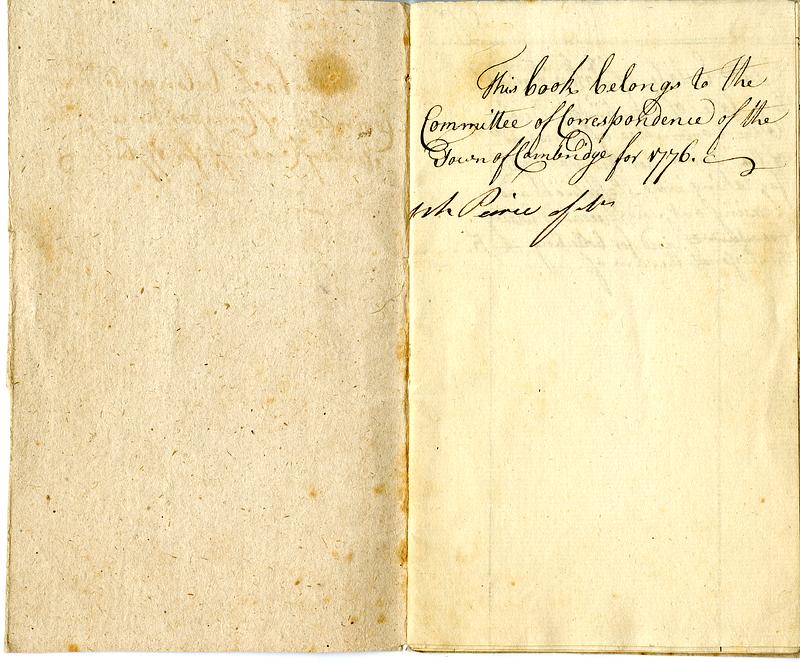 This book belongs to the
Committee of Correspondence of the
Town of Cambridge for 1776.
Peirce